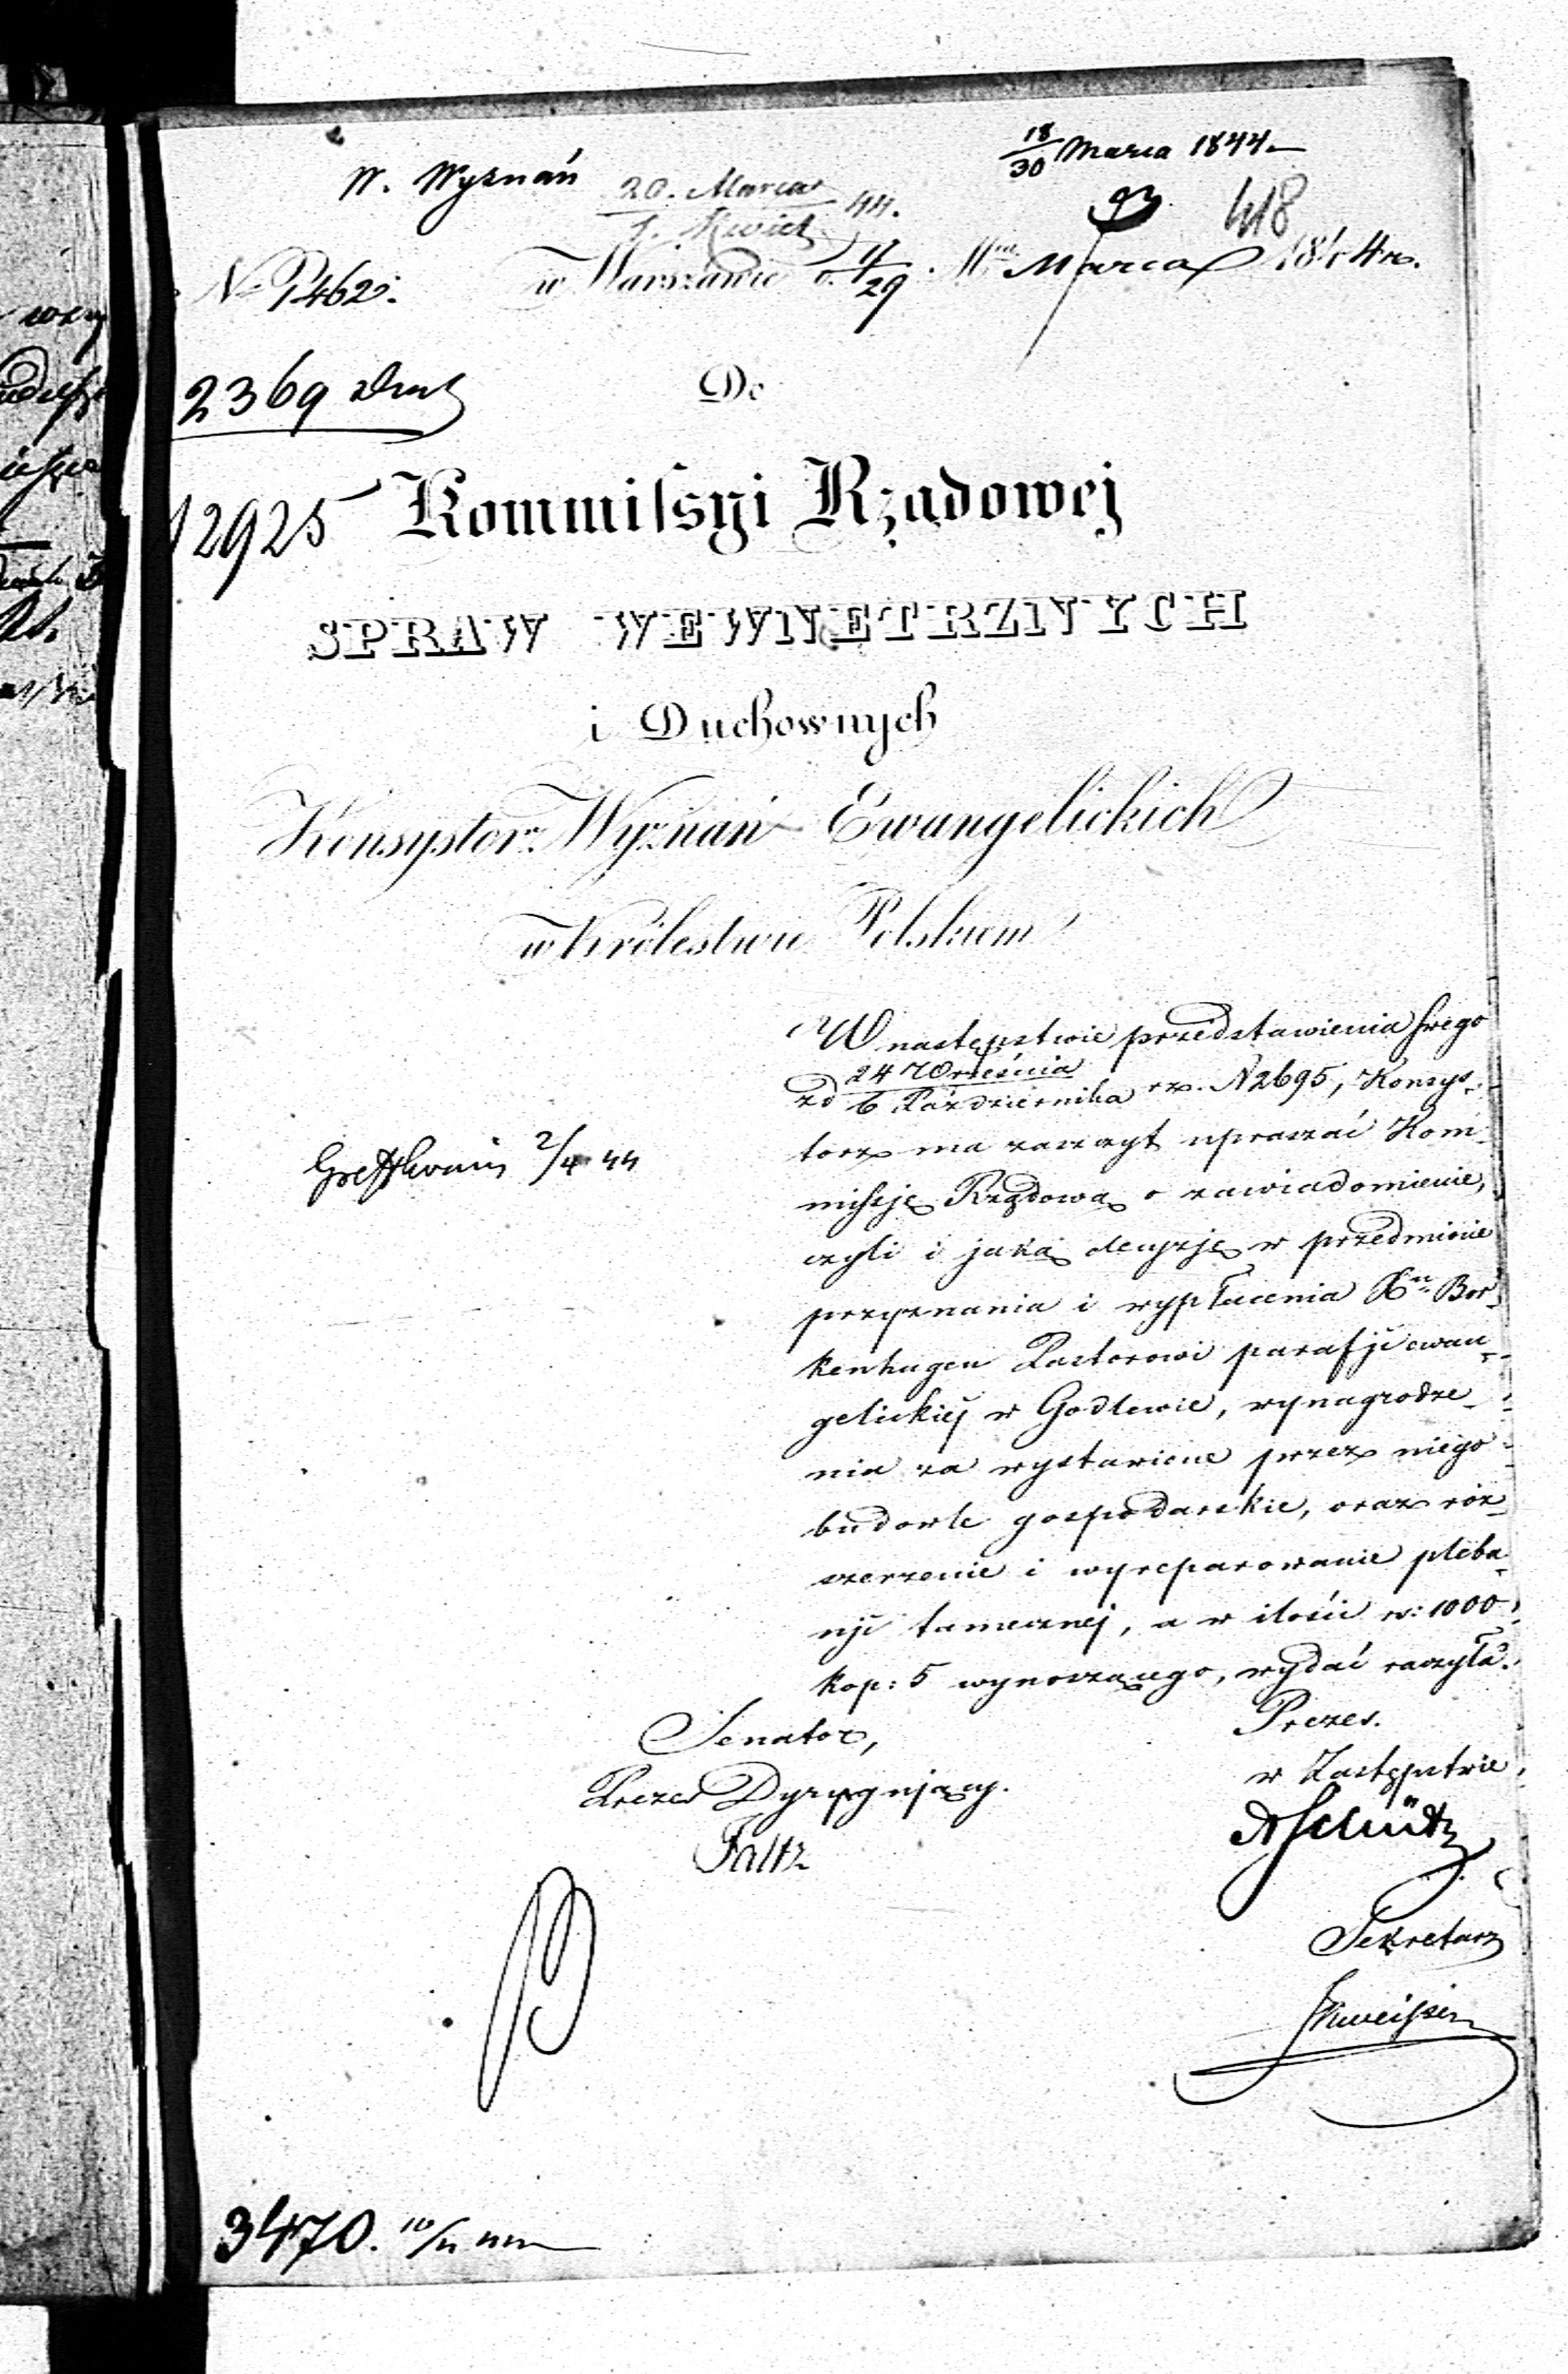 W. Wyznań
18/30 Marca 1844
20. Marca
1. Kwiet. 44.
93
418
No 462.
w Warszawie d. 17/29 Mca Marca 1844 r.
2369
Do
12925
Kommissyi Rządowej
SPRAW WEWNĘTRZNYCH
i Duchownych
Konsystorz Wyznań Ewangelickich
w Królestwie Polskiem
W następstwie przedstawienia swego
zd 24 Września / 6 Października rz. N 2695, Konsys-
torz ma zaszczyt upraszać Kom-
missję Rządową o zawiadomienie,
czyli i jaką decyzję w przedmiocie
przyznania i wypłacenia Xu Bor-
kenhagen Pastorowi parafji ewan-
gelickiej w Godlewie, wynagrodze-
nia za wystawione przez niego
budowle gospodarskie, oraz roz-
szerzenie i wyreparowanie pleba-
nji tamecznej, a w ilości rs: 1000
kop: 5 wynoszącego, wydać raczyła.
2/4 44
Senator,
Prezes Dyrygujący.
Faltz
Prezes.
w Zastępstwie
Schütz
Sekretarz
3470.